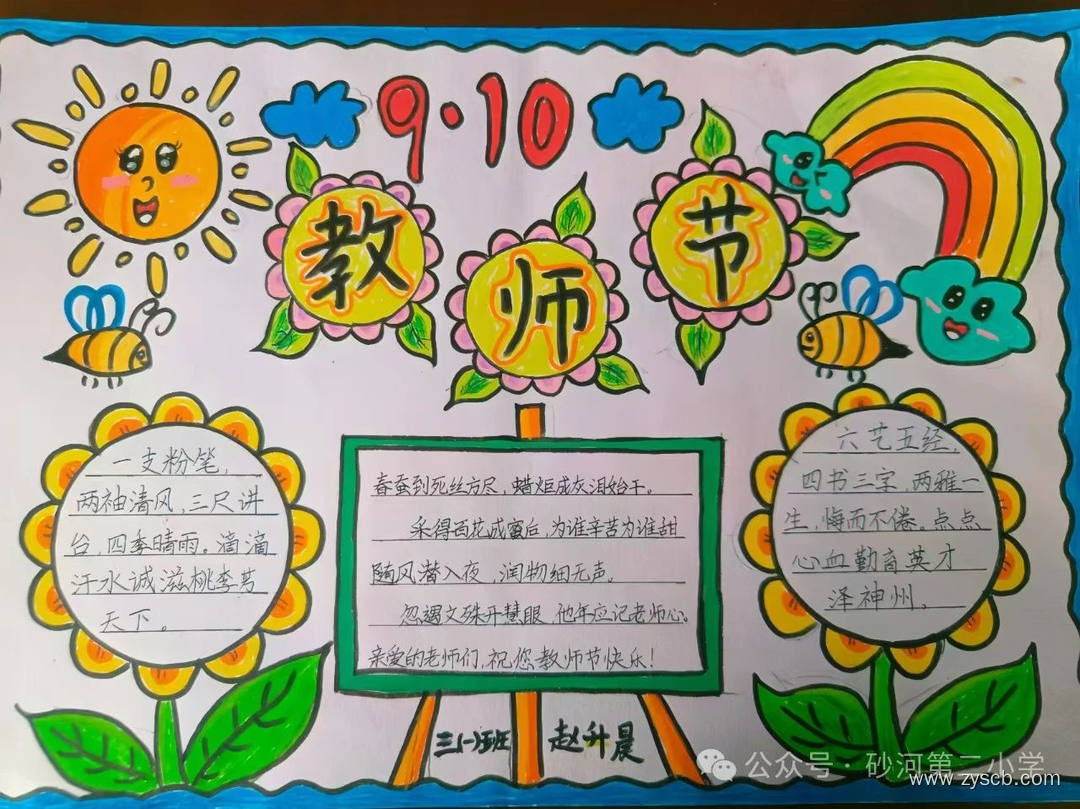 9·10
教师节
一支粉笔,
两袖清风,三尺讲
台,四季晴雨。滴滴
汗水诚滋桃李芳
天下。
春蚕到死丝方尽,蜡炬成灰泪始干。
采得百花成蜜后,为谁辛苦为谁甜
随风潜入夜,润物细无声。
忽遇文殊开慧眼,他年应记老师心。
亲爱的老师们,祝您教师节快乐!
六艺五经,
四书三字,两雅一
生,悔而不倦。点点
心血勤育英才
泽神州。
三(一)班 赵升晨
公众号·砂河第二小学
www.zyscb.com